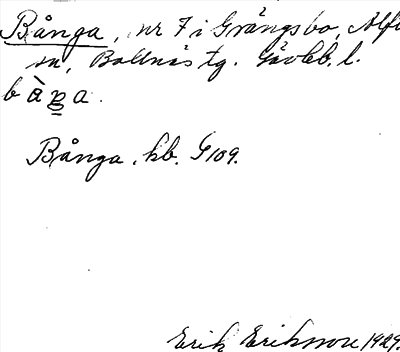 Bånga, nr 7 i Grängsbo, Alfta
sn, Bollnäs tg. Gävleb. l.
bàŋa.
Bånga, kb. G 109.
Erik Eriksson 1929.